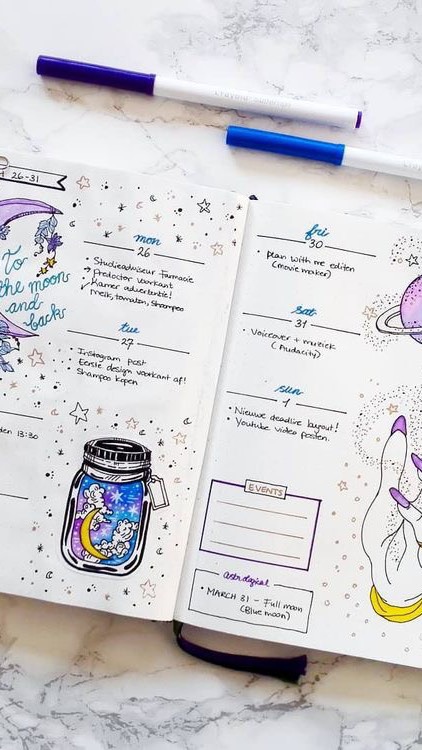 26-31
To
the moon
and
back
den 13:30
mon
26
Studieadviseur Farmacie
Predoctor voorkant
Kamer advertentie!
melk, tomaten, shampoo
tue
27
Instagram post
Eerste design voorkant af!
Shampoo kopen
fri
30
plan with me editen
(movie maker)
sat
31
Voiceover + muziek
(Audacity)
sun
1
Nieuwe deadline layout!
Youtube video posten.
EVENTS
astrological
MARCH 31 - Full moon
(Blue moon)